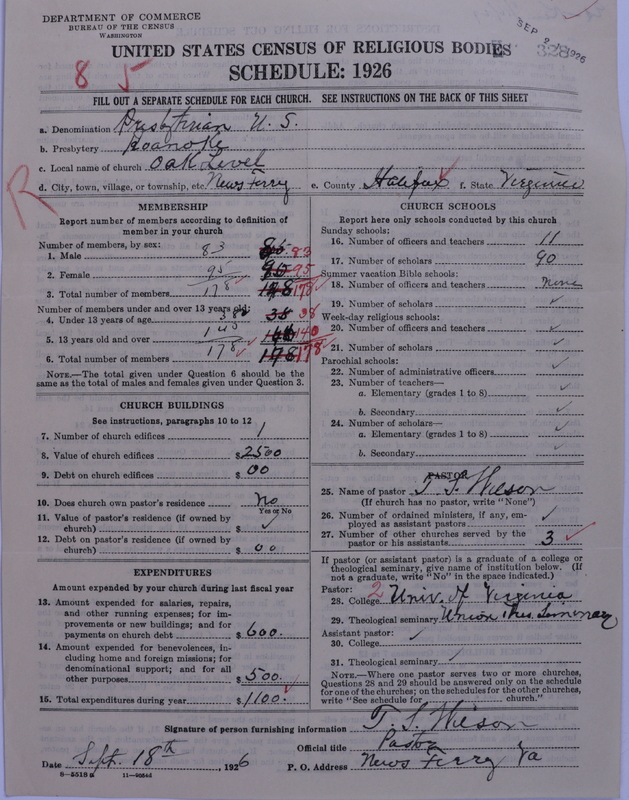 DEPARTMENT OF COMMERCE
BUREAU OF THE CENSUS
WASHINGTON
SEP 1926
328
UNITED STATES CENSUS OF RELIGIOUS BODIES
8 5
SCHEDULE: 1926
FILL OUT A SEPARATE SCHEDULE FOR EACH CHURCH. SEE INSTRUCTIONS ON THE BACK OF THIS SHEET
a. Denomination Presbyterian U. S.
b. Presbytery Roanoke
c. Local name of church Oak Level
d. City, town, village, or township, etc. News Ferry e. County Halifax f. State Virginia
R
MEMBERSHIP
Report number of members according to definition of
member in your church
Number of members, by sex:
1. Male 83 83
2. Female 95 95 95
3. Total number of members 178 178 178
Number of members under and over 13 years old:
4. Under 13 years of age 38 38 38
5. 13 years old and over 140 140
6. Total number of members 178 178 178
NOTE.—The total given under Question 6 should be the
same as the total of males and females given under Question 3.
CHURCH BUILDINGS
See instructions, paragraphs 10 to 12
7. Number of church edifices 1
8. Value of church edifices $ 2500
9. Debt on church edifices $ 00
10. Does church own pastor's residence No
Yes or No
11. Value of pastor's residence (if owned by
church) $ ✓
12. Debt on pastor's residence (if owned by
church) $ 00
EXPENDITURES
Amount expended by your church during last fiscal year
13. Amount expended for salaries, repairs,
and other running expenses; for im-
provements or new buildings; and for
payments on church debt $ 600.
14. Amount expended for benevolences, in-
cluding home and foreign missions; for
denominational support; and for all
other purposes $ 500.
15. Total expenditures during year $ 1100.
CHURCH SCHOOLS
Report here only schools conducted by this church
Sunday schools:
16. Number of officers and teachers 11
17. Number of scholars 90
Summer vacation Bible schools:
18. Number of officers and teachers none
19. Number of scholars ✓
Week-day religious schools:
20. Number of officers and teachers ✓
21. Number of scholars ✓
Parochial schools:
22. Number of administrative officers ✓
23. Number of teachers—
a. Elementary (grades 1 to 8) ✓
b. Secondary ✓
24. Number of scholars—
a. Elementary (grades 1 to 8) ✓
b. Secondary ✓
PASTOR
25. Name of pastor T. S. Wilson
(If church has no pastor, write "None")
26. Number of ordained ministers, if any, em-
ployed as assistant pastors ✓
27. Number of other churches served by the
pastor or his assistants 3
If pastor (or assistant pastor) is a graduate of a college or
theological seminary, give name of institution below. (If
not a graduate, write "No" in the space indicated.)
Pastor: 2
28. College Univ. of Virginia
29. Theological seminary Union Theo. Seminary
Assistant pastor:
30. College ✓
31. Theological seminary ✓
NOTE.—Where one pastor serves two or more churches,
Questions 28 and 29 should be answered only on the schedule
for one of the churches; on the schedules for the other churches,
write "See schedule for church."
Signature of person furnishing information T. S. Wilson
Official title Pastor
Date Sept. 18th, 1926 P. O. Address News Ferry Va
8—5518a 11—9054d